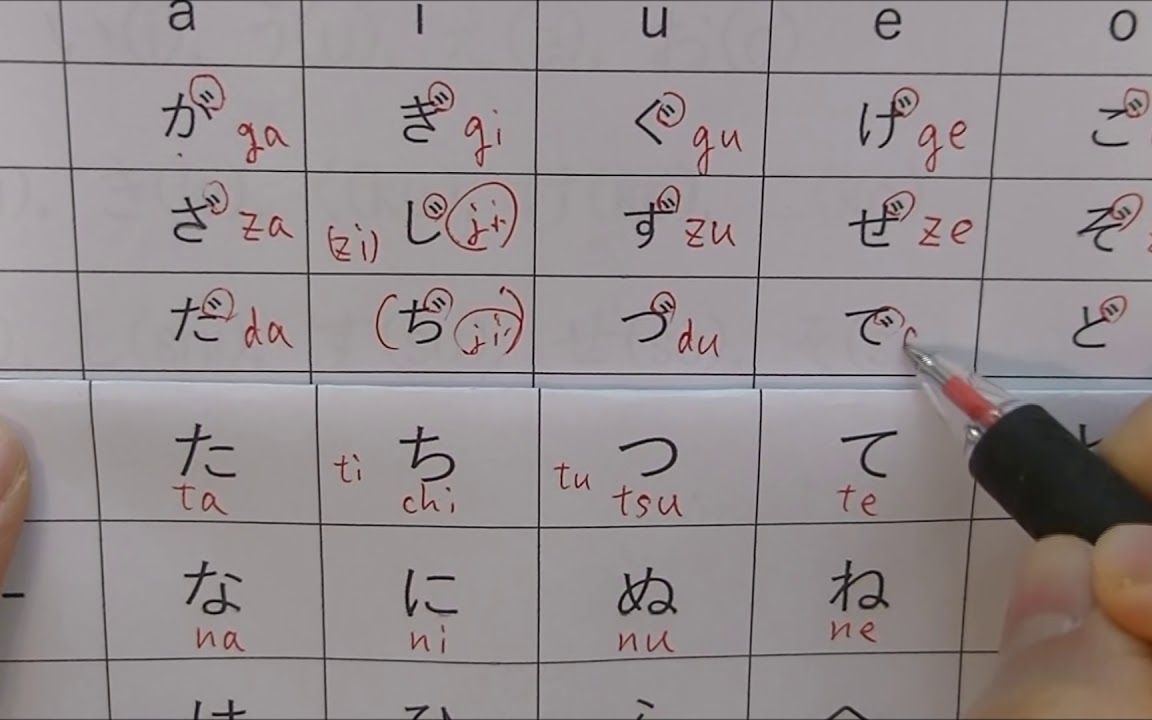 a i u e o
が ga ぎ gi ぐ gu げ ge ご
ざ za (zi) じ ji ず zu ぜ ze ぞ
だ da (ぢ ji) づ du で ど
た ti ち tu つ て
ta chi tsu te
な に ぬ ね
na ni nu ne